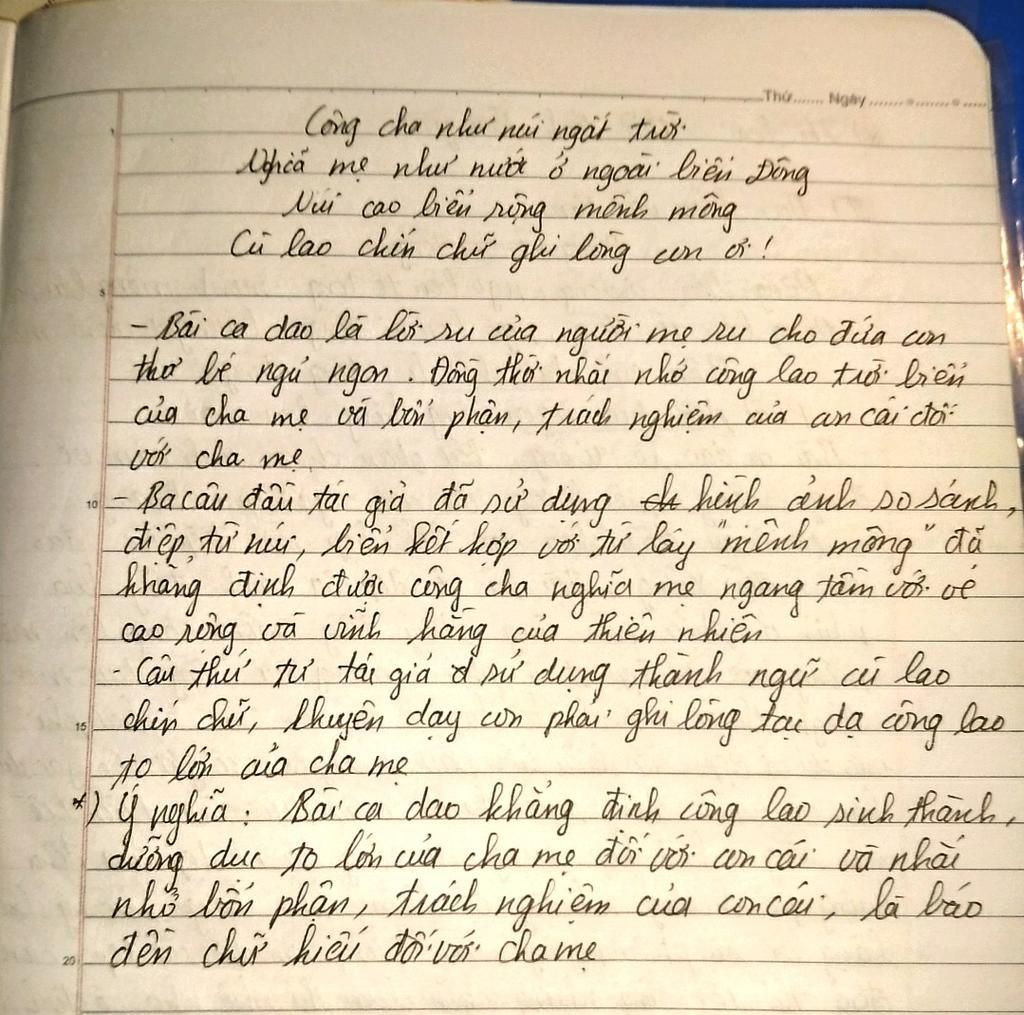 Thứ....... Ngày...............
Công cha như núi ngất trời
Nghĩa mẹ như nước ở ngoài biển Đông
Núi cao biển rộng mênh mông
Cù lao chín chữ ghi lòng con ơi!
5
- Bài ca dao là lời ru của người mẹ ru cho đứa con
thơ bé ngủ ngon. Đồng thời nhắc nhở công lao trời biển
của cha mẹ và bổn phận, trách nghiệm của con cái đối
với cha mẹ
10 - Ba câu đầu tác giả đã sử dụng hình ảnh so sánh,
điệp từ núi, biển kết hợp với từ láy "mênh mông" đã
khẳng định được công cha nghĩa mẹ ngang tầm với vẻ
cao rộng và vĩnh hằng của thiên nhiên
- Câu thứ tư tác giả sử dụng thành ngữ cù lao
15 chín chữ, khuyên dạy con phải ghi lòng tạc dạ công lao
to lớn của cha mẹ
*) Ý nghĩa: Bài ca dao khẳng định công lao sinh thành,
dưỡng dục to lớn của cha mẹ đối với con cái và nhắc
nhở bổn phận, trách nghiệm của con cái, là báo
20 đền chữ hiếu đối với cha mẹ